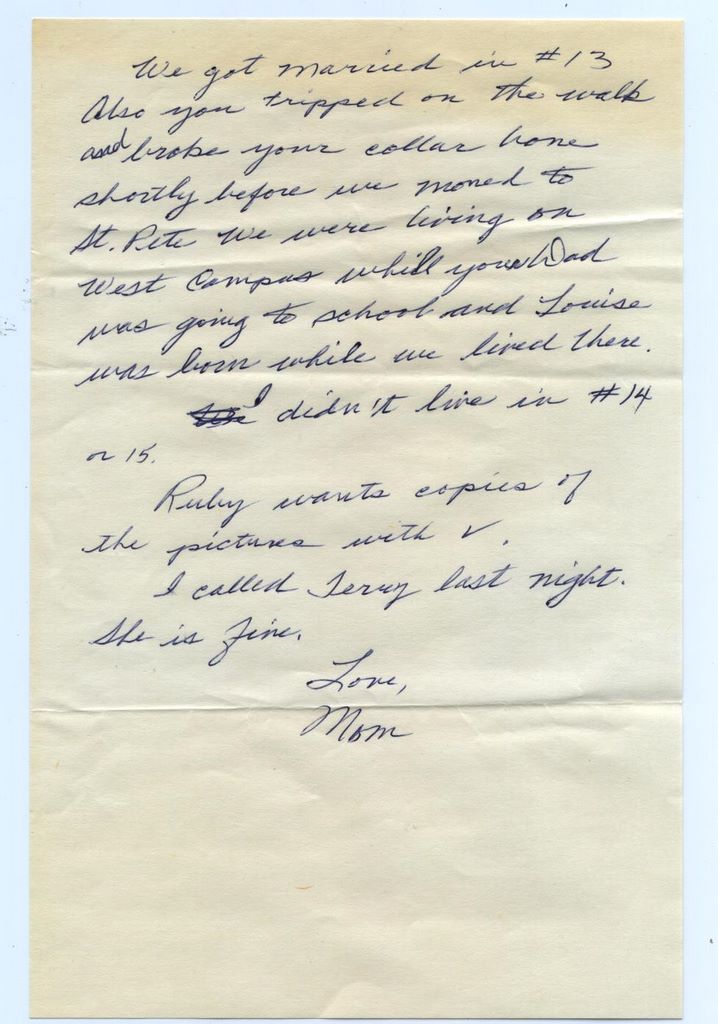 We got married in #13
Also you tripped on the walk
and broke your collar bone
shortly before we moved to
St. Pete We were living on
West Campus while your Dad
was going to school and Louise
was born while we lived there.
I didn't live in #14
or 15.
Ruby wants copies of
the pictures with V.
I called Terry last night.
She is fine.
Love,
Mom